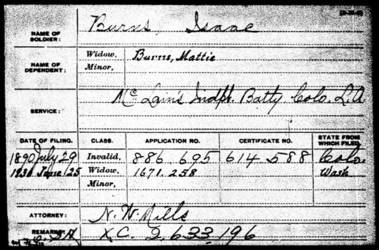 NAME OF SOLDIER: Burns, Isaac
NAME OF DEPENDENT: Widow, Burns, Mattie
Minor,
SERVICE: Mc Lain's Indpt. Batty Colo. L.A.
DATE OF FILING. CLASS. APPLICATION NO. CERTIFICATE NO. STATE FROM WHICH FILED.
1890 July 29 Invalid, 886.695 614.588 Colo.
Widow, 1671.258 Wash
Minor,
ATTORNEY: N. W. Mills
REMARKS: XC. 2.633.196